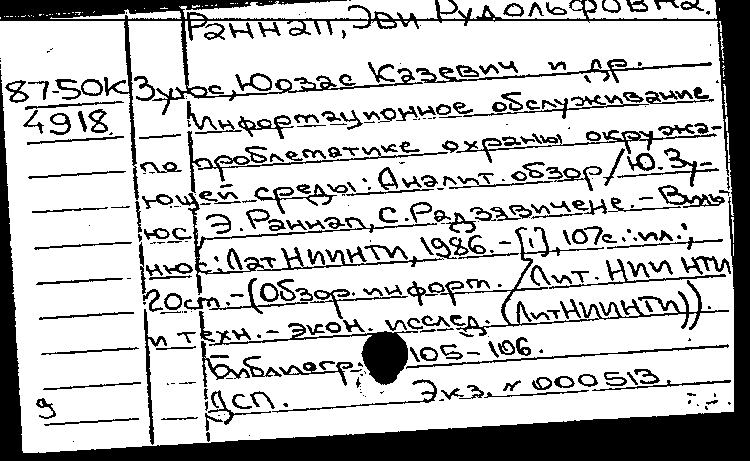 Раннап, Эви Рудольфовна.
87-50К Зуюс, Юозас Казевич и др.
4918 Информационное обслуживание
по проблематике охраны окружа-
ющей среды: Аналит. обзор / Ю. Зу-
юс, Э. Раннап, С. Радзявичене. - Виль-
нюс: ЛитНИИНТИ, 1986. - [1], 107 с.: ил.;
20 см. - (Обзор. информ. / Лит. НИИ НТИ
и техн.-экон. исслед. (ЛитНИИНТИ)).
Библиогр. 105-106.
ДСП. Экз. № 000513.